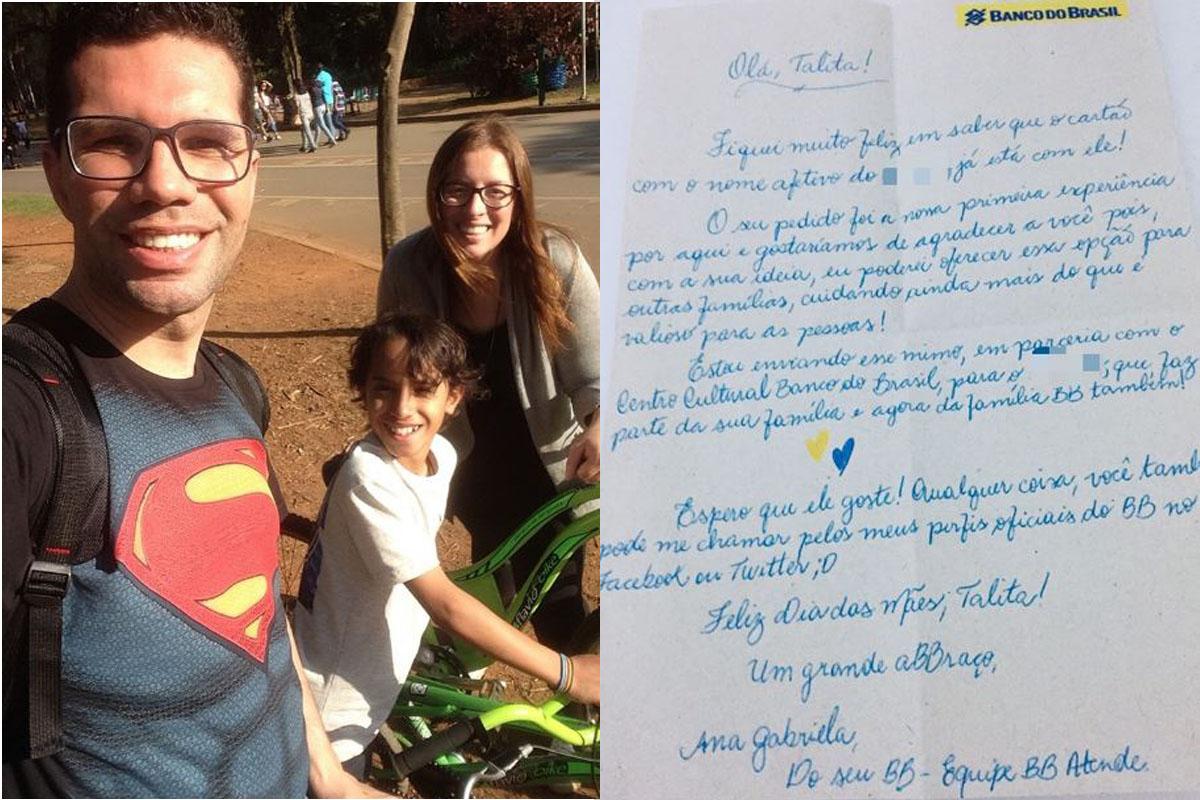 flavio bike
flavio bike
BANCO DO BRASIL
Olá, Talita!
Fiquei muito feliz em saber que o cartão
com o nome afetivo do já está com ele!
O seu pedido foi a nossa primeira experiência
por aqui e gostaríamos de agradecer a você pois,
com a sua ideia, eu poderei oferecer essa opção para
outras famílias, cuidando ainda mais do que é
valioso para as pessoas!
Estou enviando esse mimo, em parceria com o
Centro Cultural Banco do Brasil, para o , que faz
parte da sua família e agora da família BB também!
Espero que ele goste! Qualquer coisa, você tamb
pode me chamar pelos meus perfis oficiais do BB no
Facebook ou Twitter ;D
Feliz Dia das Mães, Talita!
Um grande aBBraço,
Ana Gabriela,
Do seu BB - Equipe BB Atende.